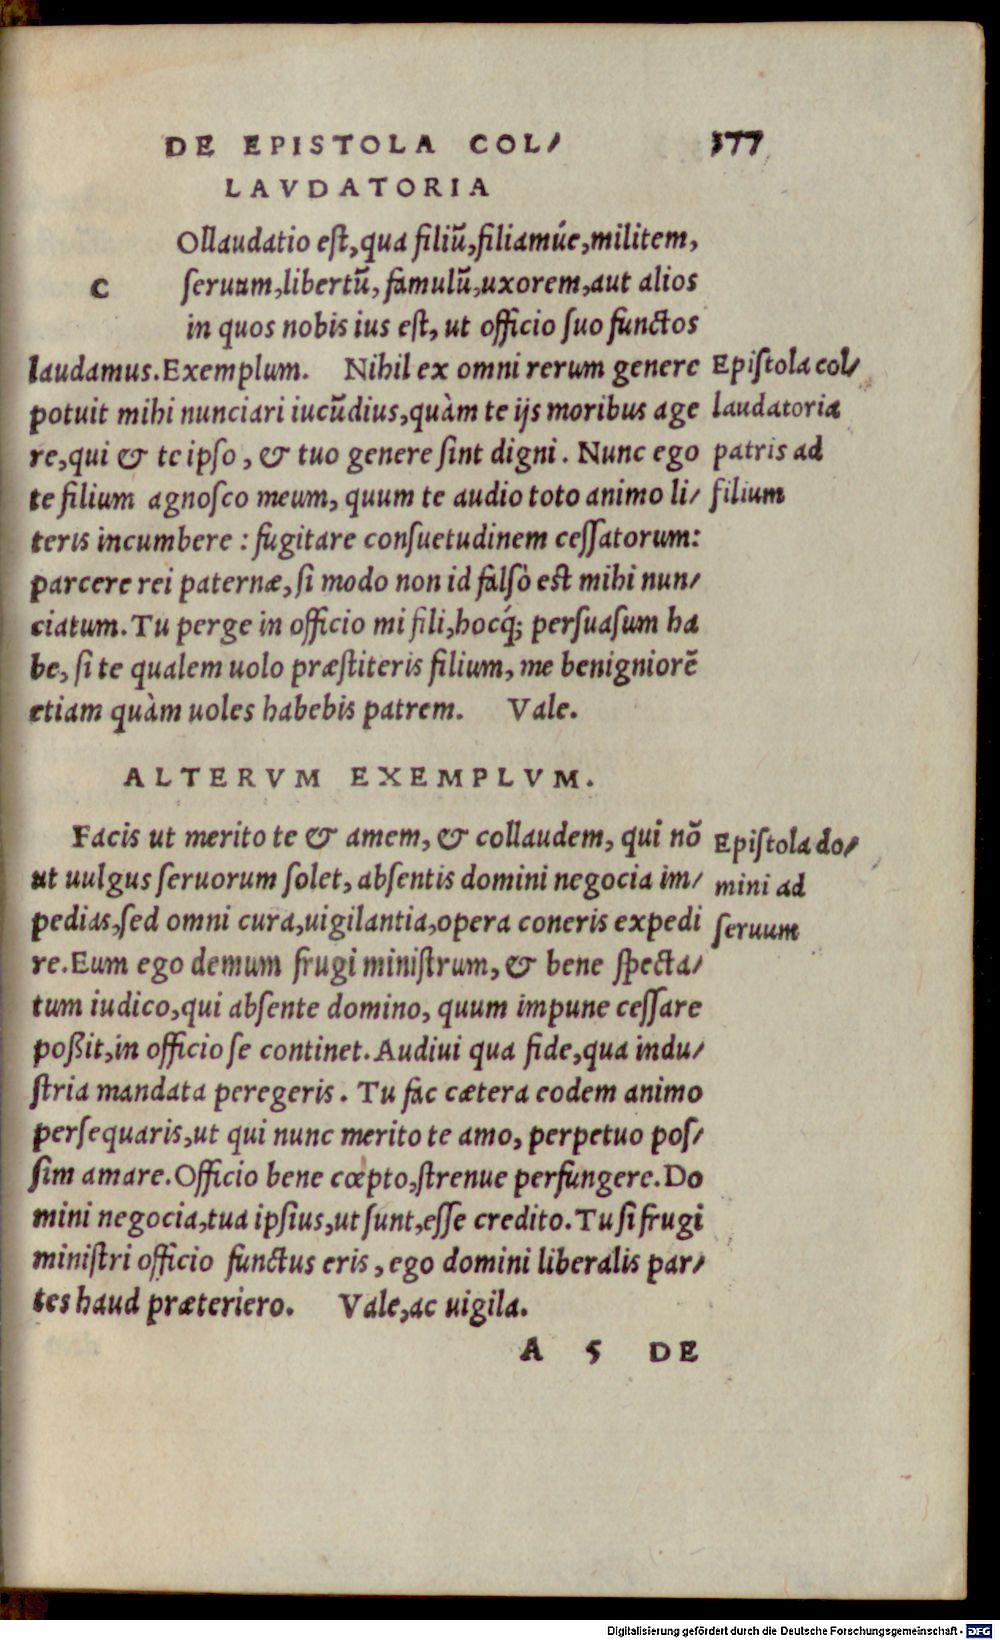 DE EPISTOLA COL/ 377
LAVDATORIA
COllaudatio est, qua filiũ, filiamúe, militem,
seruum, libertũ, famulũ, uxorem, aut alios
in quos nobis ius est, ut officio suo functos
laudamus. Exemplum. Nihil ex omni rerum genere
potuit mihi nunciari iucũdius, quàm te ijs moribus age
re, qui & te ipso, & tuo genere sint digni. Nunc ego
te filium agnosco meum, quum te audio toto animo li/
teris incumbere: fugitare consuetudinem cessatorum:
parcere rei paternæ, si modo non id falsò est mihi nun/
ciatum. Tu perge in officio mi fili, hocq́; persuasum ha
be, si te qualem uolo præstiteris filium, me benigniorẽ
etiam quàm uoles habebis patrem. Vale.
Epistola col/
laudatoria
patris ad
filium
ALTERVM EXEMPLVM.
Facis ut merito te & amem, & collaudem, qui nõ
ut uulgus seruorum solet, absentis domini negocia im/
pedias, sed omni cura, uigilantia, opera coneris expedi
re. Eum ego demum frugi ministrum, & bene specta/
tum iudico, qui absente domino, quum impune cessare
poßit, in officio se continet. Audiui qua fide, qua indu/
stria mandata peregeris. Tu fac cætera eodem animo
persequaris, ut qui nunc merito te amo, perpetuo pos/
sim amare. Officio bene cœpto, strenue perfungere. Do
mini negocia, tua ipsius, ut sunt, esse credito. Tu si frugi
ministri officio functus eris, ego domini liberalis par/
tes haud præteriero. Vale, ac uigila.
Epistola do/
mini ad
seruum
A 5 DE
Digitalisierung gefördert durch die Deutsche Forschungsgemeinschaft - DFG